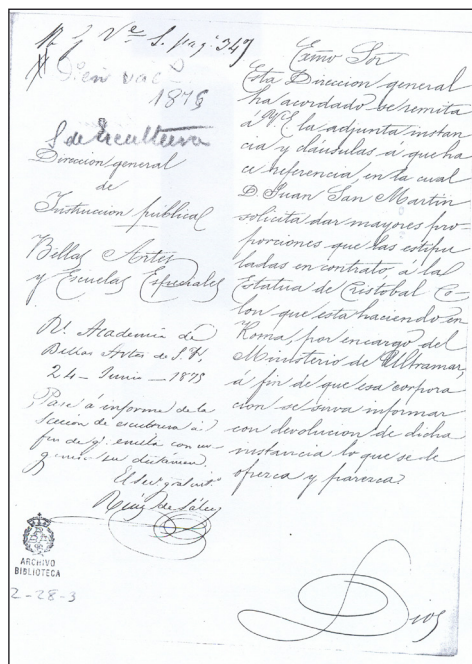 Vᵉ S. pagᵃ 349
1875
S. de Escultura
Direccion general
de
Instruccion publica
Bellas Artes
y Escuelas Especiales
Rˡ. Academia de
Bellas Artes de S. F.
24 - Junio - 1875
Pase á informe de la
Seccion de escultura á
fin de qᵉ emita con ur-
gencia su dictámen.
El Secº gral
Ruiz de Salces
ARCHIVO
BIBLIOTECA
2-28-3
Exmo Sor
Esta Direccion general
ha acordado se remita
á V.E. la adjunta instan
cia y cláusulas á que ha
ce referencia, en la cual
D. Juan San Martin
solicita dar mayores pro-
porciones que las estipu
ladas en contrato, á la
Estatua de Cristobal Co-
lon que está haciendo en
Roma, por encargo del
Ministerio de Ultramar,
á fin de que esa corpora
cion se sirva informar
con devolucion de dicha
instancia lo que se le
ofrezca y parezca.
Dios